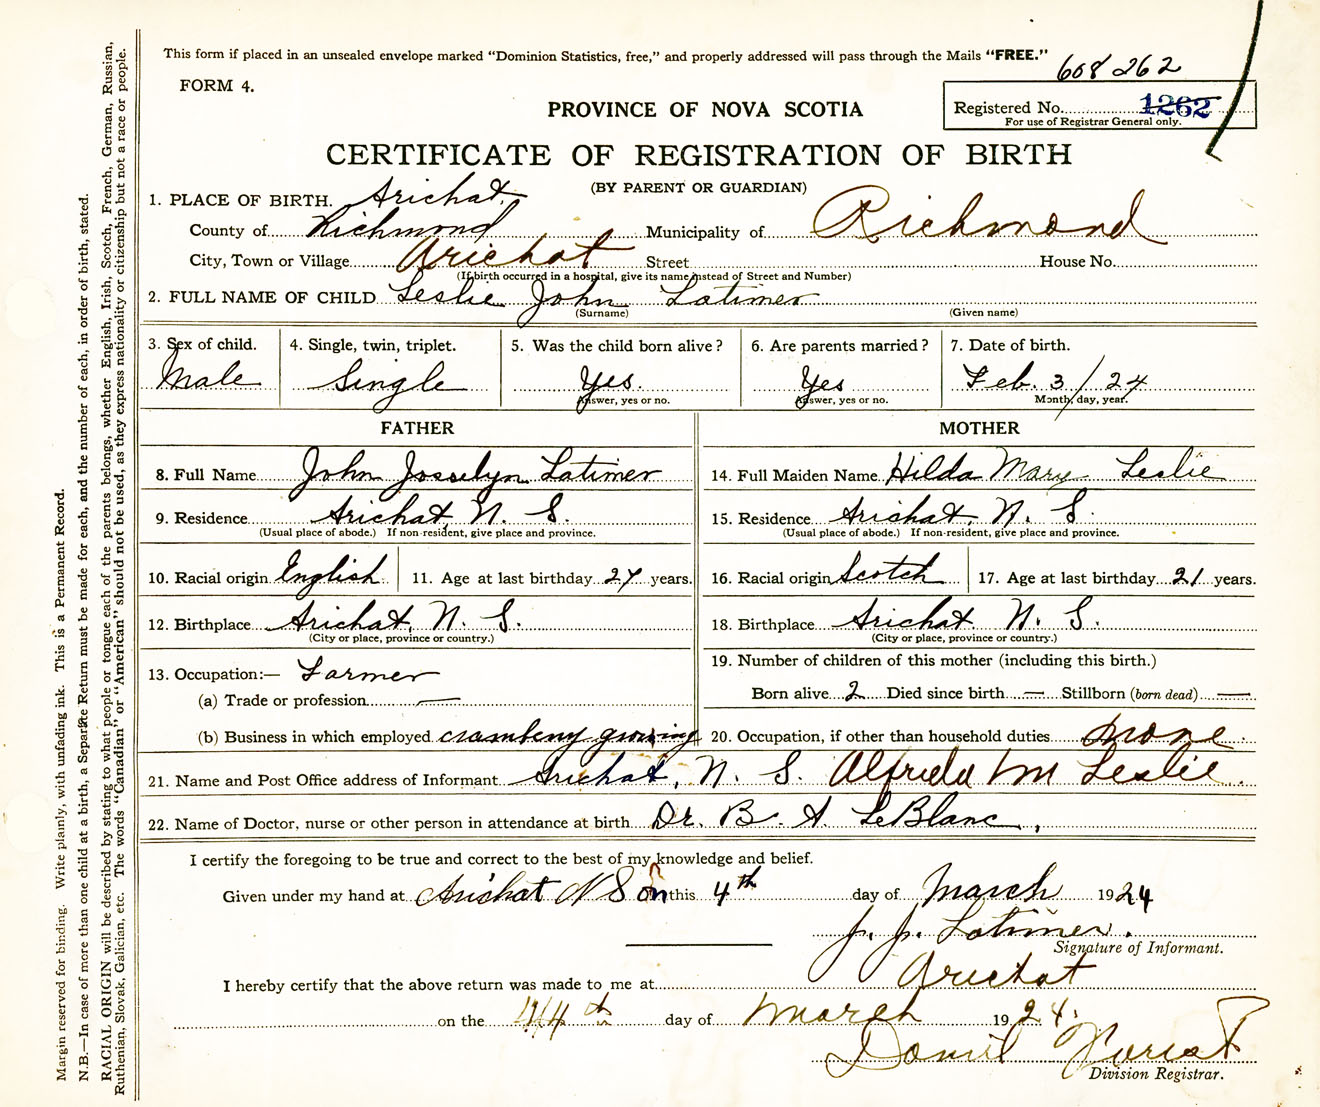 This form if placed in an unsealed envelope marked "Dominion Statistics, free," and properly addressed will pass through the Mails "FREE."
608 262
FORM 4.
Registered No. 1262
For use of Registrar General only.
PROVINCE OF NOVA SCOTIA
CERTIFICATE OF REGISTRATION OF BIRTH
(BY PARENT OR GUARDIAN)
1. PLACE OF BIRTH. Arichat.
County of Richmond Municipality of Richmond
City, Town or Village Arichat Street House No.
(If birth occurred in a hospital, give its name instead of Street and Number)
2. FULL NAME OF CHILD Leslie John Latimer
(Surname) (Given name)
3. Sex of child. 4. Single, twin, triplet. 5. Was the child born alive? 6. Are parents married? 7. Date of birth.
Male Single Yes. Yes Feb. 3/24
Answer, yes or no. Answer, yes or no. Month, day, year.
FATHER MOTHER
8. Full Name John Josselyn Latimer 14. Full Maiden Name Hilda Mary Leslie
9. Residence Arichat, N. S. 15. Residence Arichat, N. S.
(Usual place of abode.) If non-resident, give place and province. (Usual place of abode.) If non-resident, give place and province.
10. Racial origin English 11. Age at last birthday 27 years. 16. Racial origin Scotch 17. Age at last birthday 21 years.
12. Birthplace Arichat, N. S. 18. Birthplace Arichat N. S.
(City or place, province or country.) (City or place, province or country.)
13. Occupation:— Farmer 19. Number of children of this mother (including this birth.)
(a) Trade or profession — Born alive 2 Died since birth — Stillborn (born dead) —
(b) Business in which employed cranberry growing 20. Occupation, if other than household duties none.
21. Name and Post Office address of Informant Arichat, N. S. Alfreda M Leslie.
22. Name of Doctor, nurse or other person in attendance at birth Dr. B. A. LeBlanc,
I certify the foregoing to be true and correct to the best of my knowledge and belief.
Given under my hand at Arichat N S on this 4th day of March 1924
J. J. Latimer.
Signature of Informant.
I hereby certify that the above return was made to me at Arichat
on the 4th day of March 1924.
Division Registrar.
Margin reserved for binding. Write plainly, with unfading ink. This is a Permanent Record.
N.B.—In case of more than one child at a birth, a Separate Return must be made for each, and the number of each, in order of birth, stated.
RACIAL ORIGIN will be described by stating to what people or tongue each of the parents belongs, whether English, Irish, Scotch, French, German, Russian,
Ruthenian, Slovak, Galician, etc. The words "Canadian" or "American" should not be used, as they express nationality or citizenship but not a race or people.